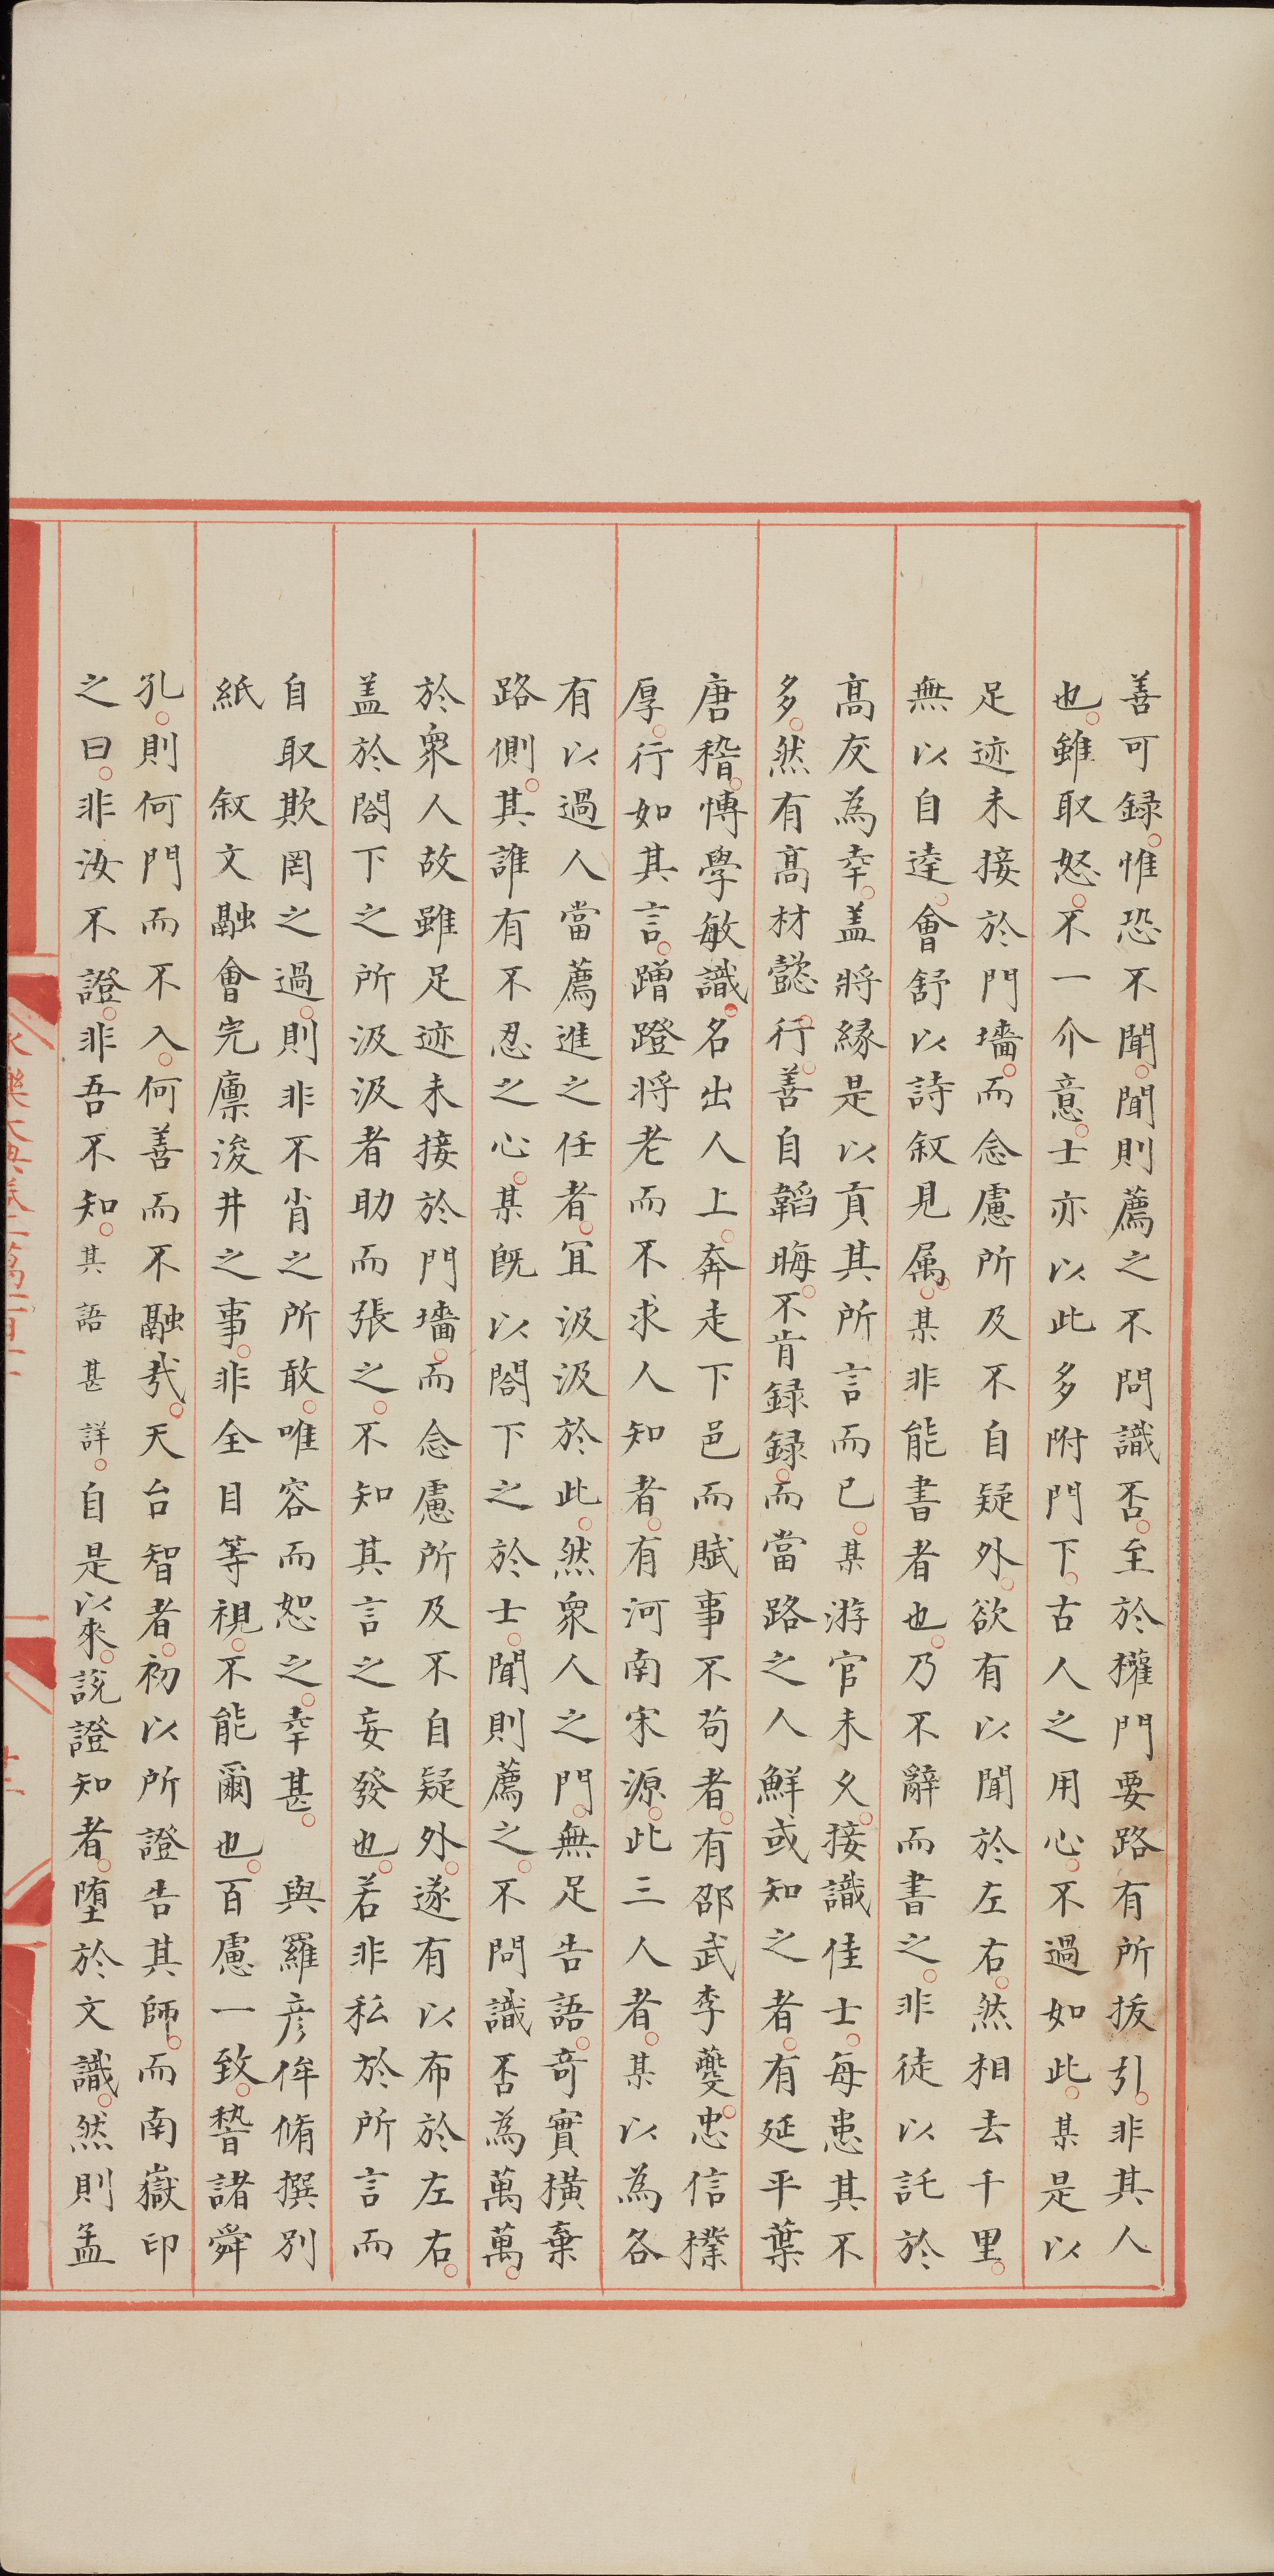 善可録惟恐不聞聞則薦之不問識否至於權門要路有所拔引非其人
也雖取怒不一介意士亦以此多附門下古人之用心不過如此某是以
足迹未接於門墻而念慮所及不自疑外欲有以聞於左右然相去千里
無以自達會舒以詩叙見属某非能書者也乃不辭而書之非徒以託於
高友為幸盖將緣是以貢其所言而已某游官未久接識佳士每患其不
多然有高材懿行善自韜晦不肯録録而當路之人鮮或知之者有延平葉
唐稽愽學敏識名出人上奔走下邑而賦事不苟者有邵武李夔忠信樸
厚行如其言蹭蹬将老而不求人知者有河南宋源此三人者某以為各
有以過人當薦進之任者宜汲汲於此然衆人之門無足告語竒實横棄
路側其誰有不忍之心某既以閤下之於士聞則薦之不問識否為萬萬
於衆人故雖足迹未接於門墻而念慮所及不自疑外遂有以布於左右
盖於閤下之所汲汲者助而張之不知其言之妄發也若非私於所言而
自取欺罔之過則非不肖之所敢唯容而恕之幸甚 與羅彦侔脩撰別
紙 叙文融會完廪浚井之事非全目等視不能爾也百慮一致瞽諸舜
孔則何門而不入何善而不融㢤天台智者初以所證告其師而南嶽印
之曰非汝不證非吾不知其語甚詳自是以來說證知者堕於文識然則孟